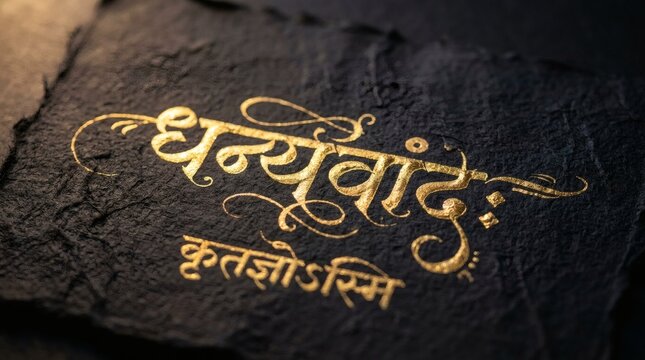 धन्यवांदः
कृतज्ञोऽस्मि